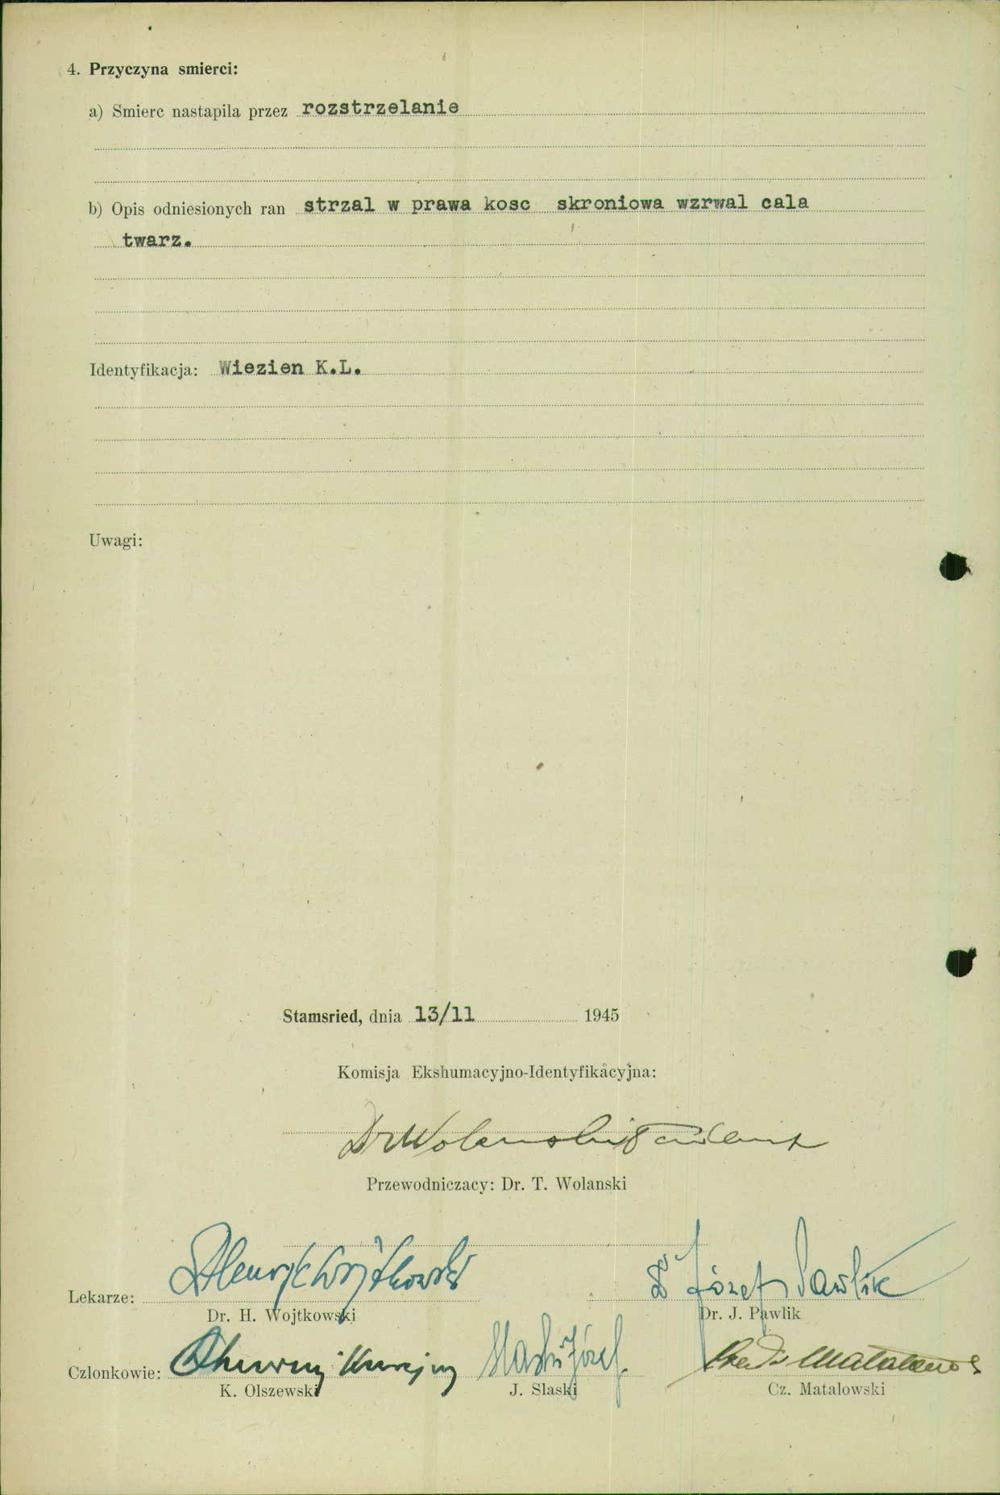 4. Przyczyna smierci:
a) Smierc nastapila przez rozstrzelanie
b) Opis odniesionych ran strzal w prawa kosc skroniowa wzrwal cala
twarz.
Identyfikacja: Wiezien K.L.
Uwagi:
Stamsried, dnia 13/11 1945
Komisja Ekshumacyjno-Identyfikacyjna:
Dr Wolanski
Przewodniczacy: Dr. T. Wolanski
Dr Józef Pawlik
Lekarze:
Dr. H. Wojtkowski Dr. J. Pawlik
Członkowie: Slaski Józef
K. Olszewski J. Slaski Cz. Matalowski